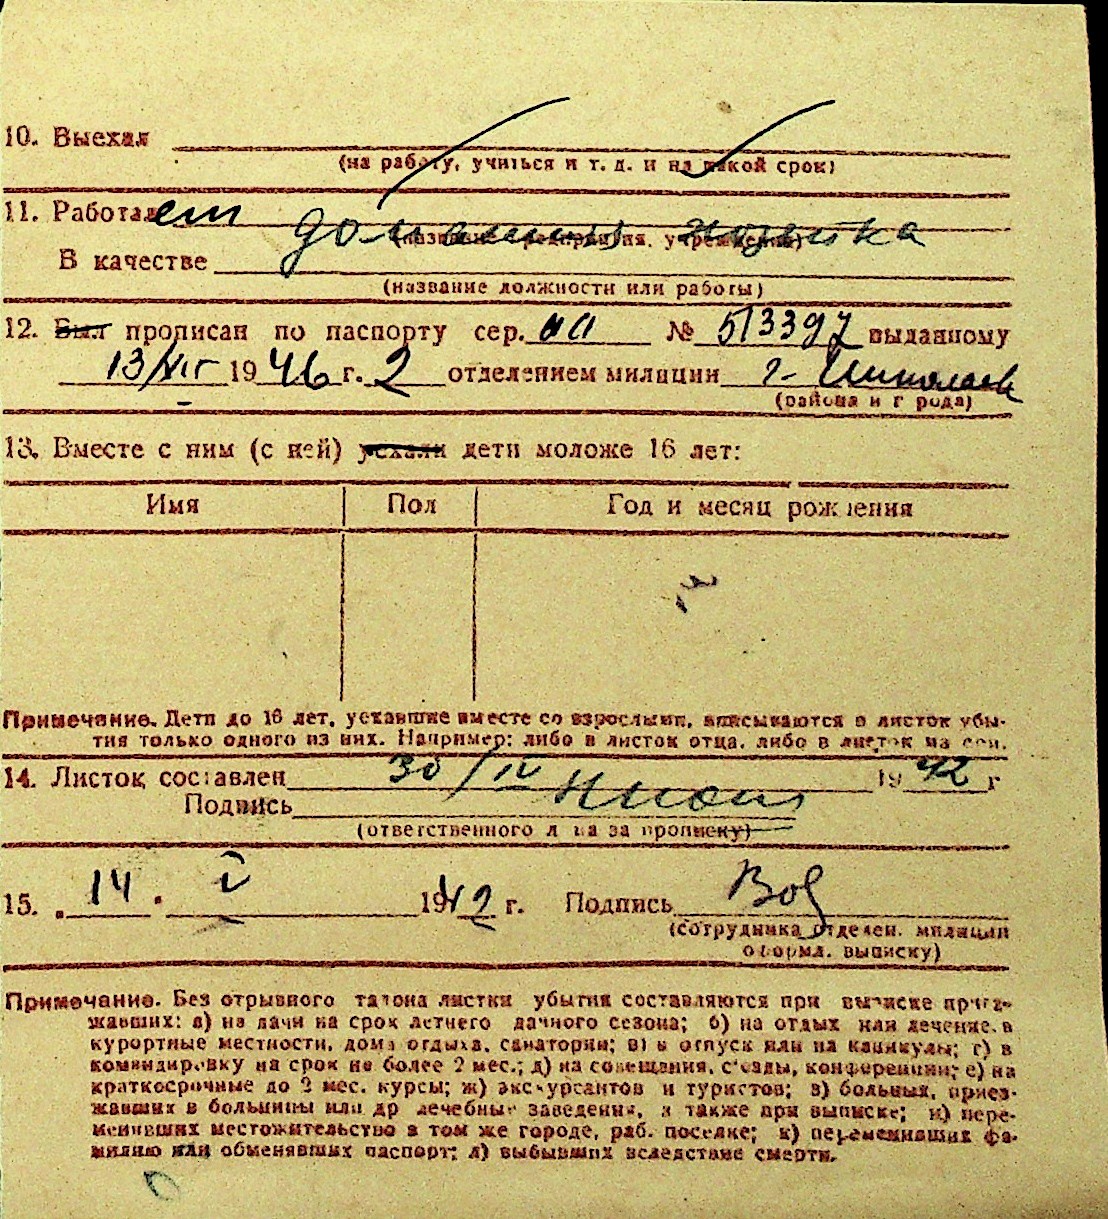 10. Выехал
(на работу, учиться и т. д. и на какой срок)
11. Работает
(название предприятия, учреждения)
В качестве
(название должности или работы)
12. Был прописан по паспорту сер. № 513397 выданному
13/VII 1946 г. 2 отделением милиции г.
(района и города)
13. Вместе с ним (с ней) уехали дети моложе 16 лет:
Имя Пол Год и месяц рождения
Примечание. Дети до 16 лет, уехавшие вместе со взрослыми, вписываются в листок убы-
тия только одного из них. Например: либо в листок отца, либо в листок матери.
14. Листок составлен 30/IV 1942 г
Подпись
(ответственного лица за прописку)
15. 14. V 1942 г. Подпись
(сотрудника отделен. милиции
оформл. выписку)
Примечание. Без отрывного талона листки убытия составляются при выписке приез-
жавших: а) на дачи на срок летнего дачного сезона; б) на отдых или лечение в
курортные местности, дома отдыха, санатории; в) в отпуск или на каникулы; г) в
командировку на срок не более 2 мес.; д) на совещания, съезды, конференции; е) на
краткосрочные до 2 мес. курсы; ж) экскурсантов и туристов; з) больных, приез-
жавших в больницы или др лечебные заведения, а также при выписке; и) пере-
менивших местожительство в том же городе, раб. поселке; к) переменивших фа-
милию или обменявших паспорт; л) выбывших вследствие смерти.